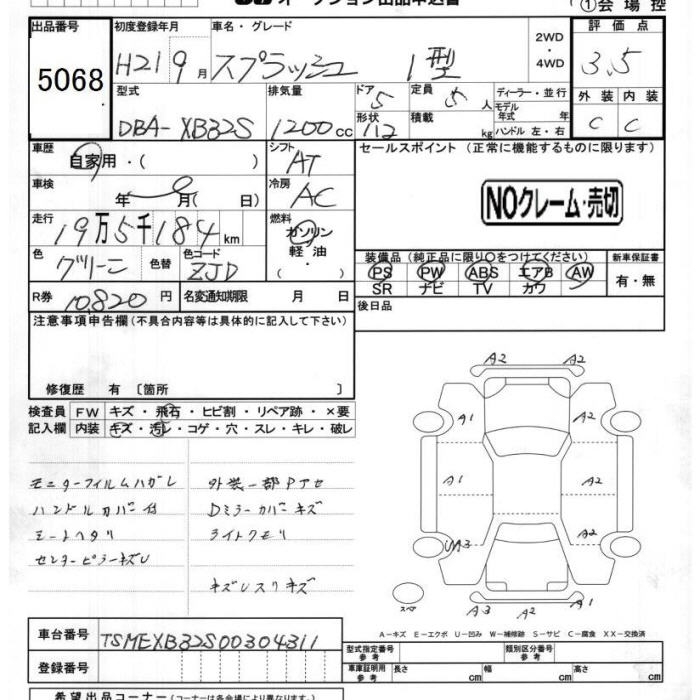 オークション出品申込書
①会場控
出品番号 初度登録年月 車名・グレード 2WD ・ 4WD 評価点
5068 H21 9月 スプラッシュ 1型 3.5
型式 排気量 ドア 5 定員 5人 ディーラー・並行 外装 内装
DBA-XB32S 1200cc 形状 積載 kg モデル年式 年式 ハンドル 左・右 C C
車歴 シフト セールスポイント (正常に機能するものに限ります)
自家用・( ) AT
車検 冷房
年 月( 日) AC
NOクレーム・売切
走行 燃料
19万5千184km ガソリン 軽・油
色 色替 色コード 装備品(純正品に限り○をつけてください) 新車保証書
グリーン ZJD ( ) PS PW ABS エアB AW 有・無
SR ナビ TV カワ
R券 10,820円 名変通知期限 月 日 後日品
注意事項申告欄(不具合内容等は具体的に記入して下さい)
修復歴 有 〔箇所 〕
検査員 FW キズ・飛石・ヒビ割・リペア跡・×要
記入欄 内装 キズ・汚レ・コゲ・穴・スレ・キレ・破レ
モニターフィルムハガレ 外装一部Pアセ
ハンドルカバー付 Dミラーカバーキズ
シートヘタリ ライトクモリ
センターピラーキズU
キズUスリキズ
A2 A2
A1 A2
A1 A2
UA3 A2
A3 A2 A1
スペア
A-キズ E-エクボ U-凹み W-補修跡 S-サビ C-腐食 XX-交換済
車台番号 TSMEXB32S00304311
登録番号
型式指定番号 参考 類別区分番号 参考
車庫証明用 参考 長さ cm 幅 cm 高さ cm
希望出品コーナー(コーナーは各会場により異なります)